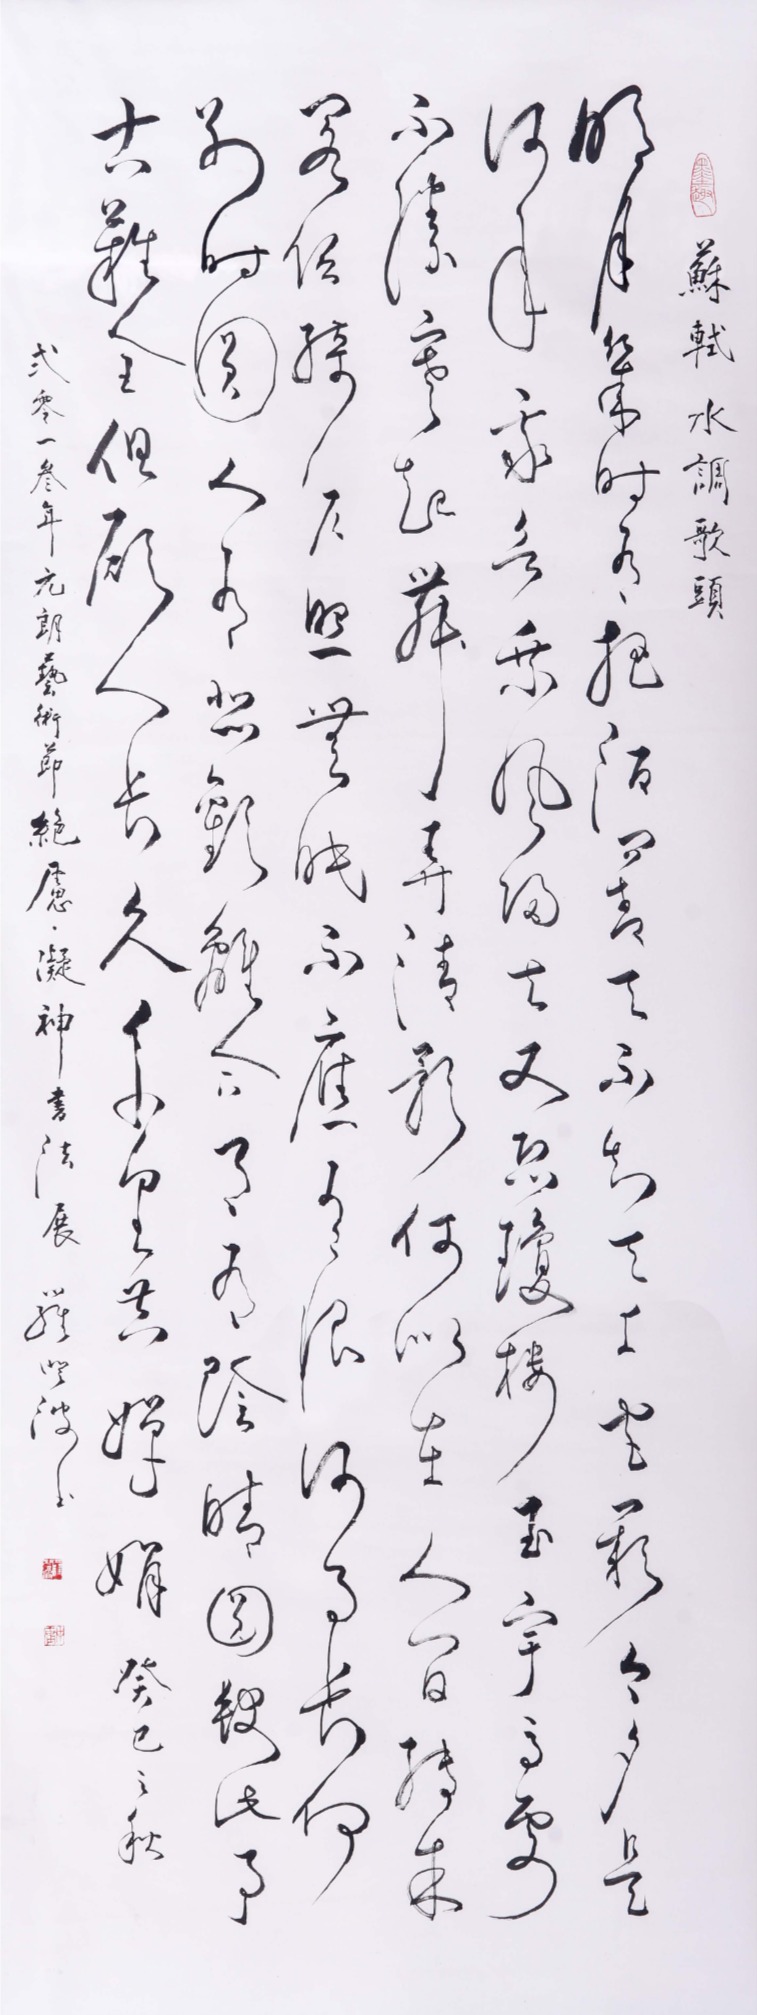 蘇軾水調歌頭
明月幾时有把酒问青天不知天上宫闕今夕是
何年我欲乘風歸去又恐瓊樓玉宇高處
不勝寒起舞弄清影何似在人間轉朱
閣低綺户照無眠不應有恨何事長向
别时圓人有悲歡離合月有陰晴圓缺此事
古難全但願人長久千里共嬋娟 癸巳之秋
弍零一叁年元朗藝術節絶慮·凝神書法展 羅波书